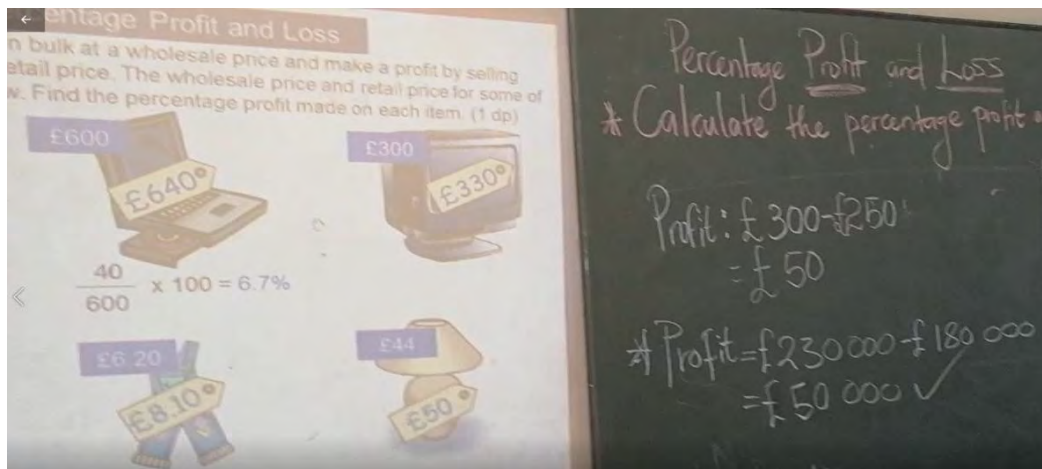 entage Profit and Loss
n bulk at a wholesale price and make a profit by selling
etail price. The wholesale price and retail price for some of
w. Find the percentage profit made on each item. (1 dp)
£600
£640
£300
£330
40
600
x 100 = 6.7%
£6.20
£8.10
£44
£50
Percentage Profit and Loss
* Calculate the percentage profit
Profit: £300-£250
= £50
* Profit = £230 000 - £180 000
= £50 000 ✓